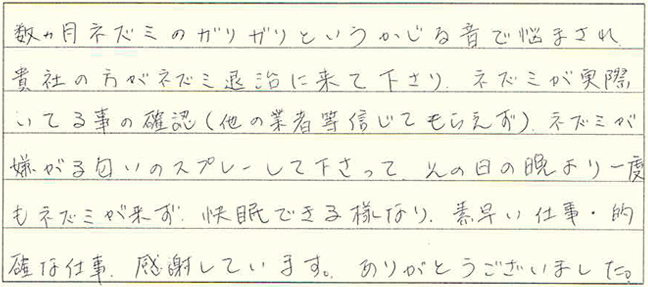 数ヵ月ネズミのガリガリというかじる音で悩まされ
貴社の方がネズミ退治に来て下さり、ネズミが実際
いてる事の確認(他の業者等信じてもらえず)、ネズミが
嫌がる匂いのスプレーして下さって、その日の晩より一度
もネズミが来ず、快眠できる様なり、素早い仕事・的
確な仕事、感謝しています。ありがとうございました。